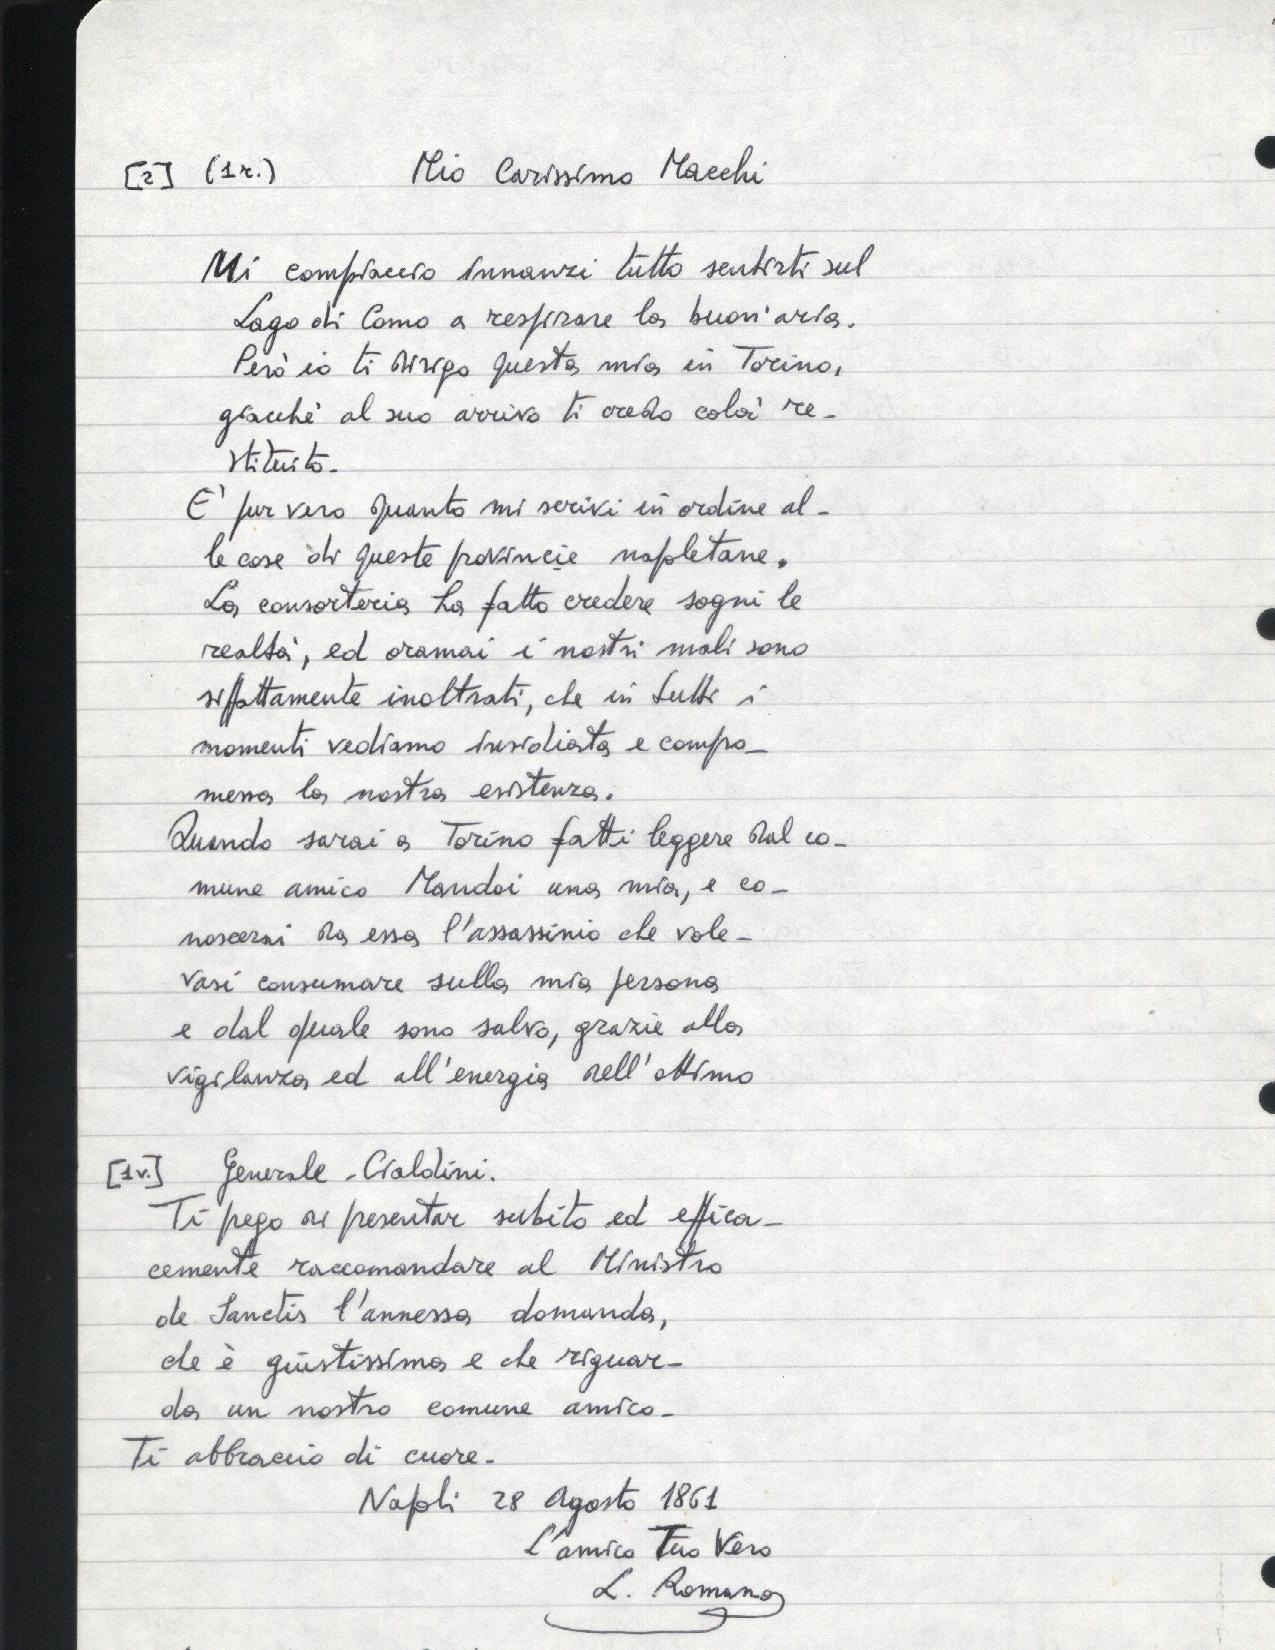 [2] (1r.) Mio Carissimo Macchi
Mi compiaccio innanzi tutto sentirti sul
Lago di Como a respirare la buon'aria.
Però io ti dirigo questa mia in Torino,
giacchè al suo arrivo ti credo colà re-
stituito.
E' pur vero quanto mi scrivi in ordine al-
le cose di queste provincie napletane.
La consorteria ha fatto credere sogni le
realtà, ed oramai i nostri mali sono
siffattamente inoltrati, che in tutti i
momenti vediamo insidiata e compo-
messa la nostra esistenza.
Quando sarai a Torino fatti leggere dal co-
mune amico Mandoi una mia, e co-
noscerai da essa l'assassinio che vole-
vasi consumare sulla mia persona
e dal quale sono salvo, grazie alla
vigilanza ed all'energia dell'ottimo
[1v.] Generale Cialdini.
Ti pego di presentar subito ed effica-
cemente raccomandare al Ministro
de Sanctis l'annessa domanda,
che è giustissima e che riguar-
da un nostro comune amico-
Ti abbraccio di cuore-
Napoli 28 Agosto 1861
L'amico Tuo Vero
L. Romano